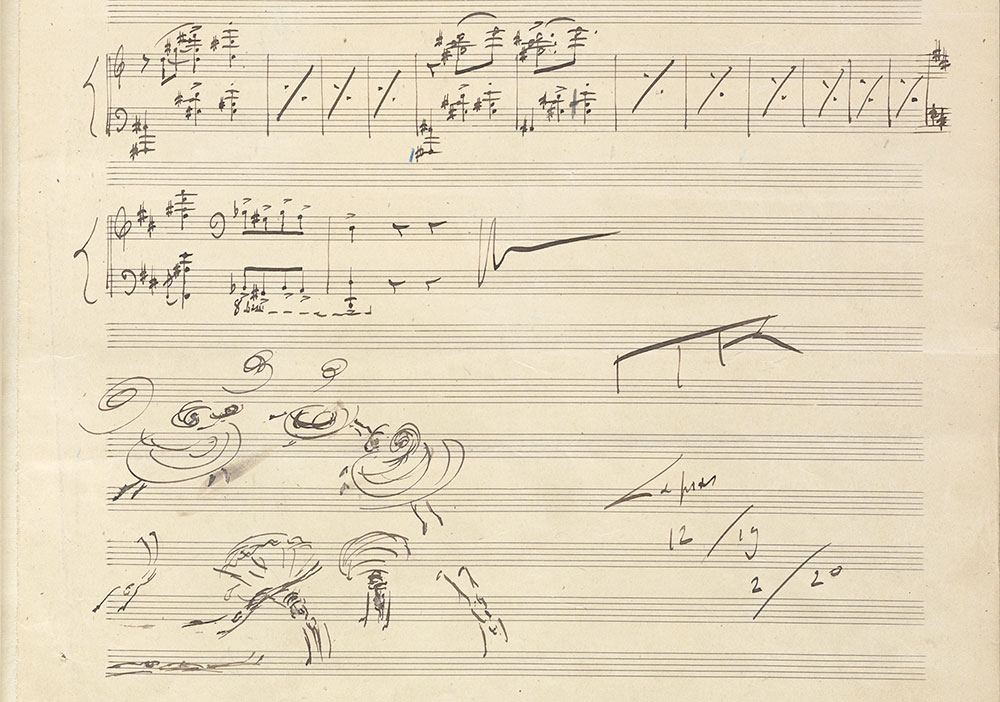 8
Lapras
12/19
2/20